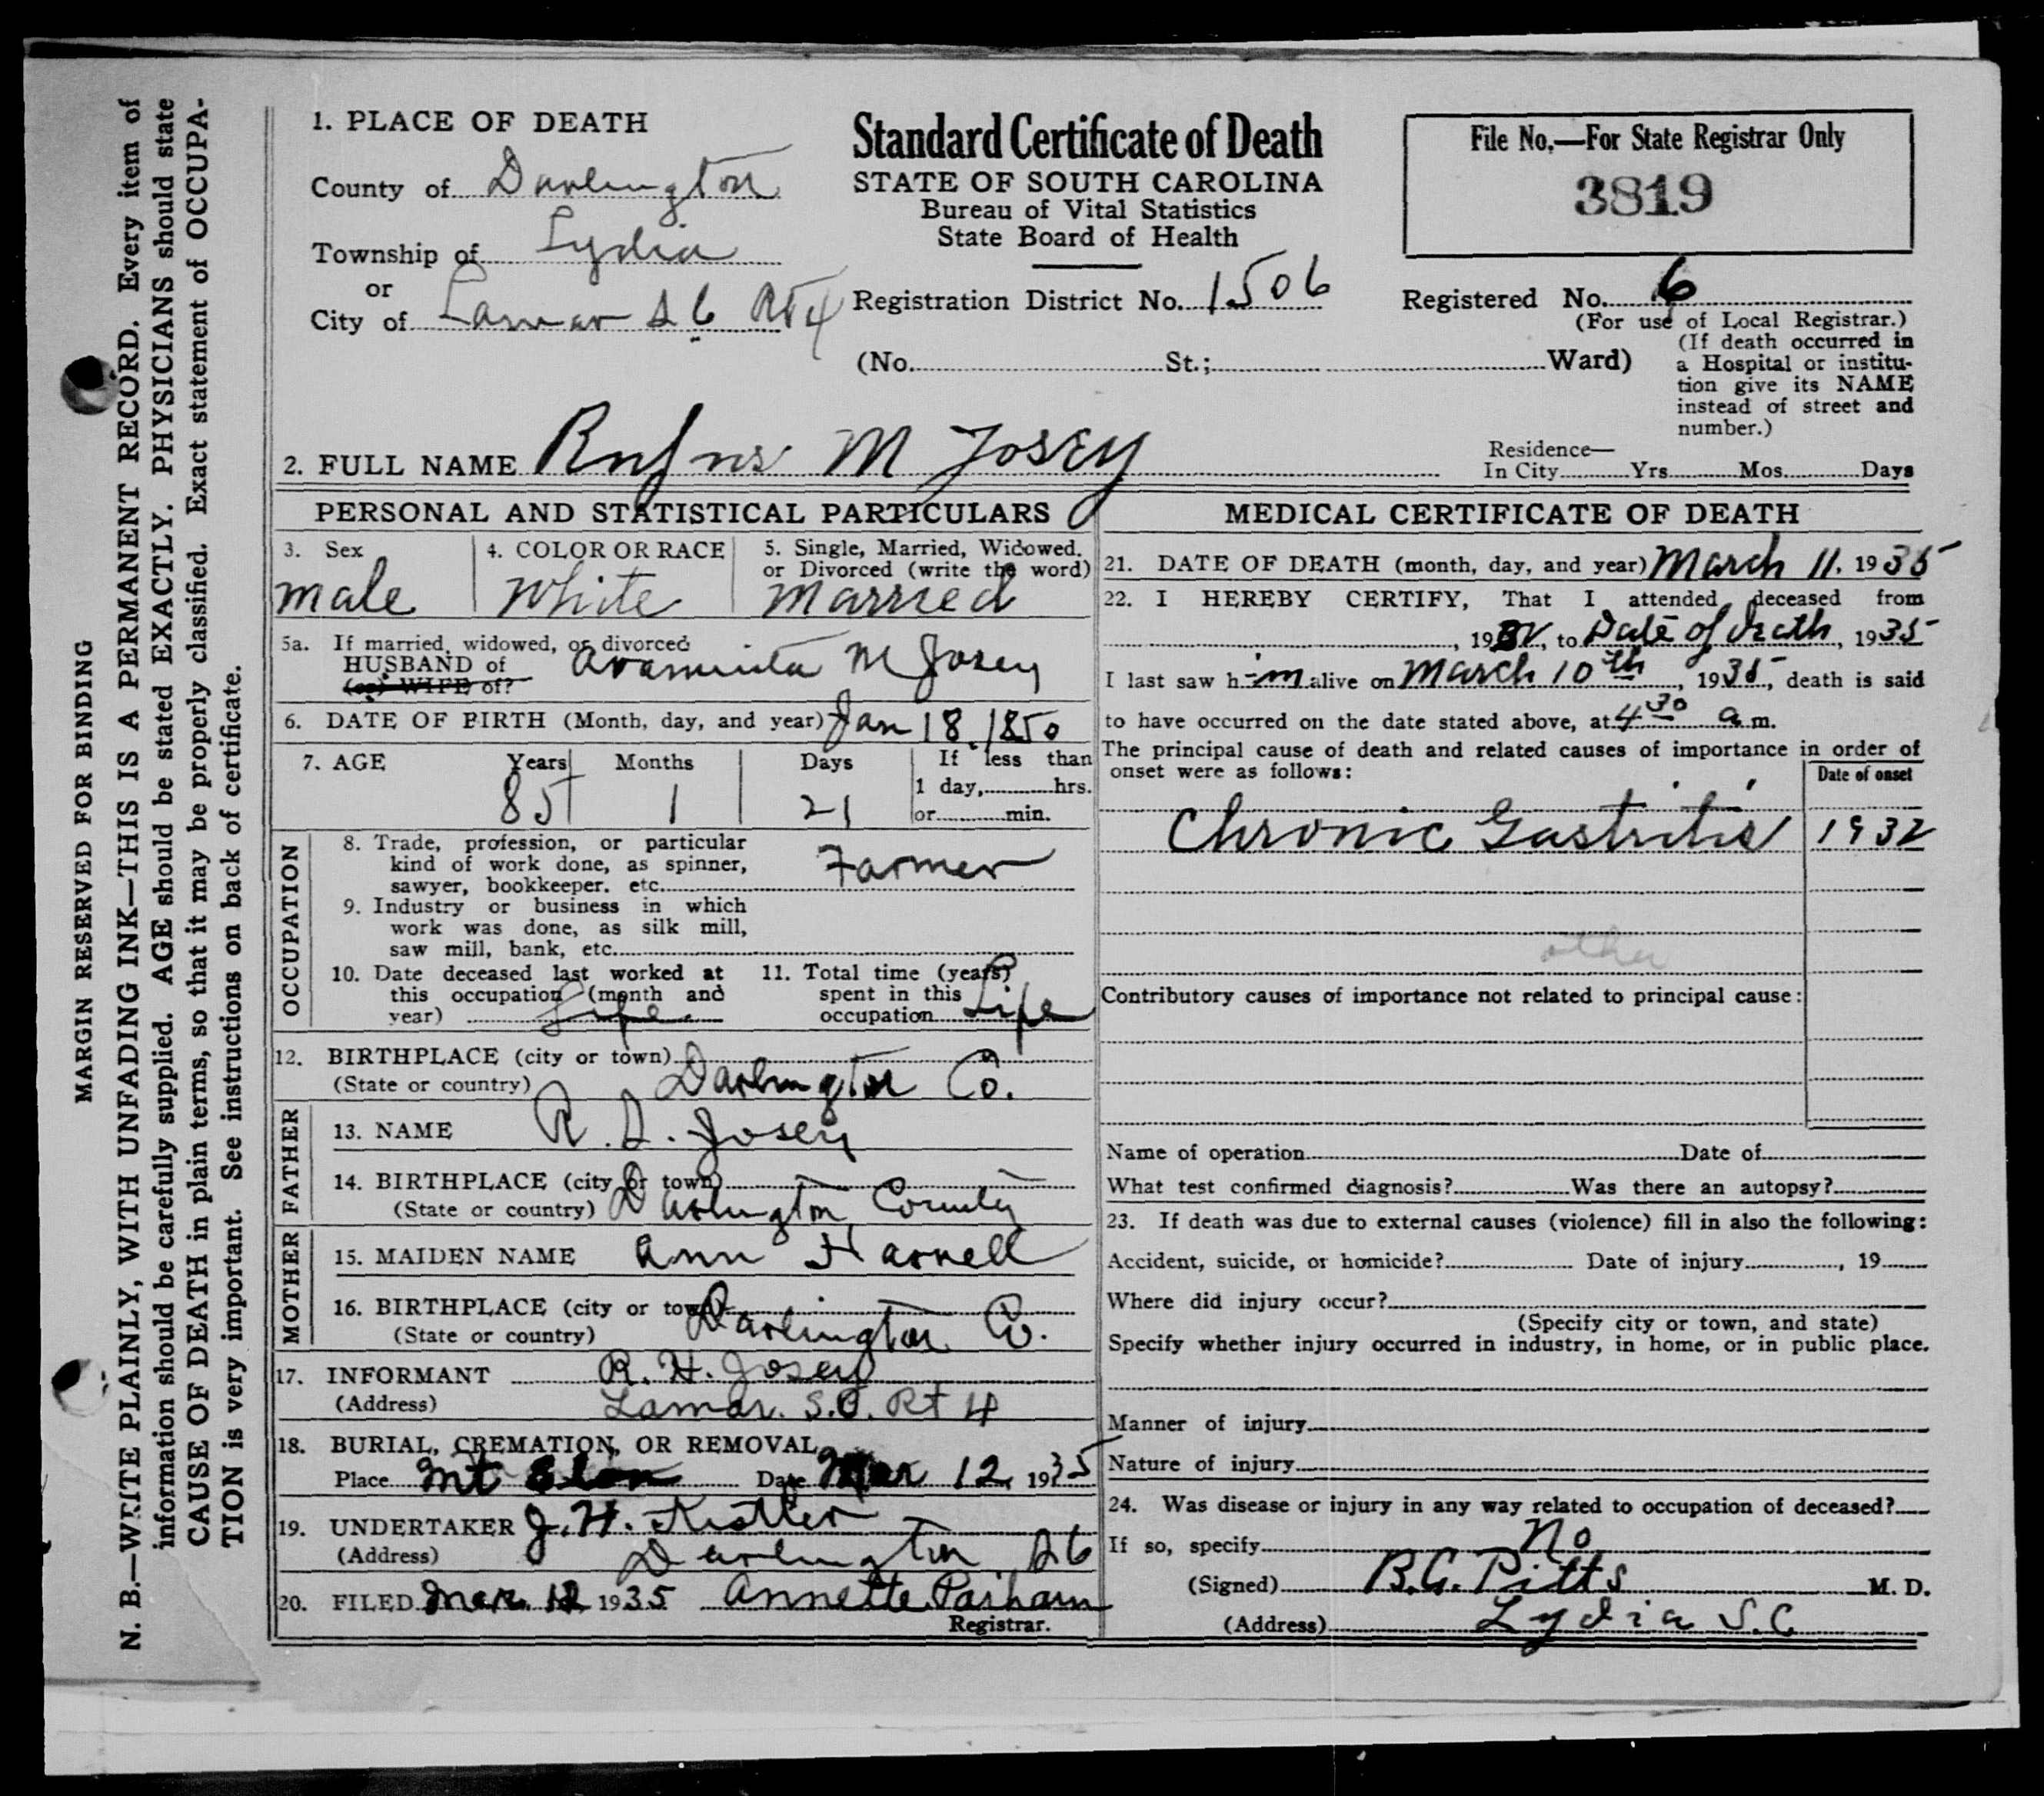 MARGIN RESERVED FOR BINDING
N. B.—WRITE PLAINLY, WITH UNFADING INK—THIS IS A PERMANENT RECORD. Every item of
information should be carefully supplied. AGE should be stated EXACTLY. PHYSICIANS should state
CAUSE OF DEATH in plain terms, so that it may be properly classified. Exact statement of OCCUPA-
TION is very important. See instructions on back of certificate.
1. PLACE OF DEATH
County of Darlington
Township of Lydia
or
City of Lamar S C Rt 4
Standard Certificate of Death
STATE OF SOUTH CAROLINA
Bureau of Vital Statistics
State Board of Health
Registration District No. 1506
(No. St.; Ward)
File No.—For State Registrar Only
3819
Registered No. 6
(For use of Local Registrar.)
(If death occurred in
a Hospital or institu-
tion give its NAME
instead of street and
number.)
2. FULL NAME Rufus M Josey
Residence—
In City Yrs Mos Days
PERSONAL AND STATISTICAL PARTICULARS
3. Sex
male
4. COLOR OR RACE
White
5. Single, Married, Widowed,
or Divorced (write the word)
Married
5a. If married, widowed, or divorced
HUSBAND of
(or) WIFE of?
M Josey
6. DATE OF BIRTH (Month, day, and year) Jan 18. 1850
7. AGE Years Months Days If less than
85 1 21 1 day, hrs.
or min.
OCCUPATION
8. Trade, profession, or particular
kind of work done, as spinner,
sawyer, bookkeeper. etc. Farmer
9. Industry or business in which
work was done, as silk mill,
saw mill, bank, etc.
10. Date deceased last worked at
this occupation (month and
year) Life
11. Total time (years)
spent in this
occupation Life
12. BIRTHPLACE (city or town)
(State or country) Darlington Co.
FATHER
13. NAME R. Josey
14. BIRTHPLACE (city or town)
(State or country) Darlington County
MOTHER
15. MAIDEN NAME Ann Harrell
16. BIRTHPLACE (city or town)
(State or country) Darlington Co.
17. INFORMANT R. H. Josey
(Address) Lamar. S.C. Rt 4
18. BURIAL, CREMATION, OR REMOVAL
Place Mt Elon Date Mar 12, 1935
19. UNDERTAKER J. H. Kistler
(Address) Darlington S C
20. FILED Mar. 12 1935 Annette Parham
Registrar.
MEDICAL CERTIFICATE OF DEATH
21. DATE OF DEATH (month, day, and year) March 11. 1935
22. I HEREBY CERTIFY, That I attended deceased from
, 19 , to Date of death, 1935
I last saw h im alive on March 10th, 1935, death is said
to have occurred on the date stated above, at 4 30 a m.
The principal cause of death and related causes of importance in order of
onset were as follows:
Date of onset
Chronic Gastritis 1932
other
Contributory causes of importance not related to principal cause:
Name of operation Date of
What test confirmed diagnosis? Was there an autopsy?
23. If death was due to external causes (violence) fill in also the following:
Accident, suicide, or homicide? Date of injury , 19
Where did injury occur?
(Specify city or town, and state)
Specify whether injury occurred in industry, in home, or in public place.
Manner of injury
Nature of injury
24. Was disease or injury in any way related to occupation of deceased?
If so, specify No
(Signed) B.G. Pitts M. D.
(Address) Lydia S.C.